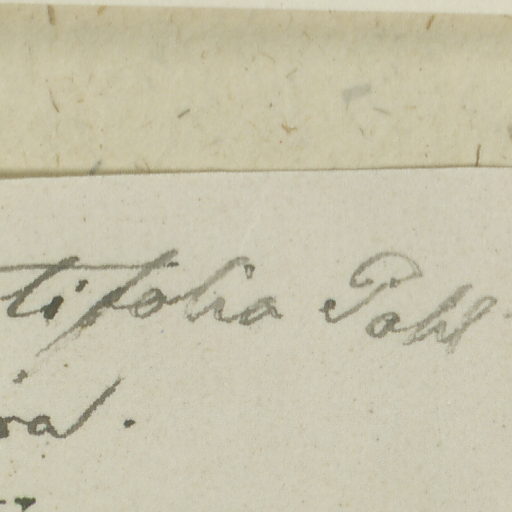 tifolia Pohl
ra.